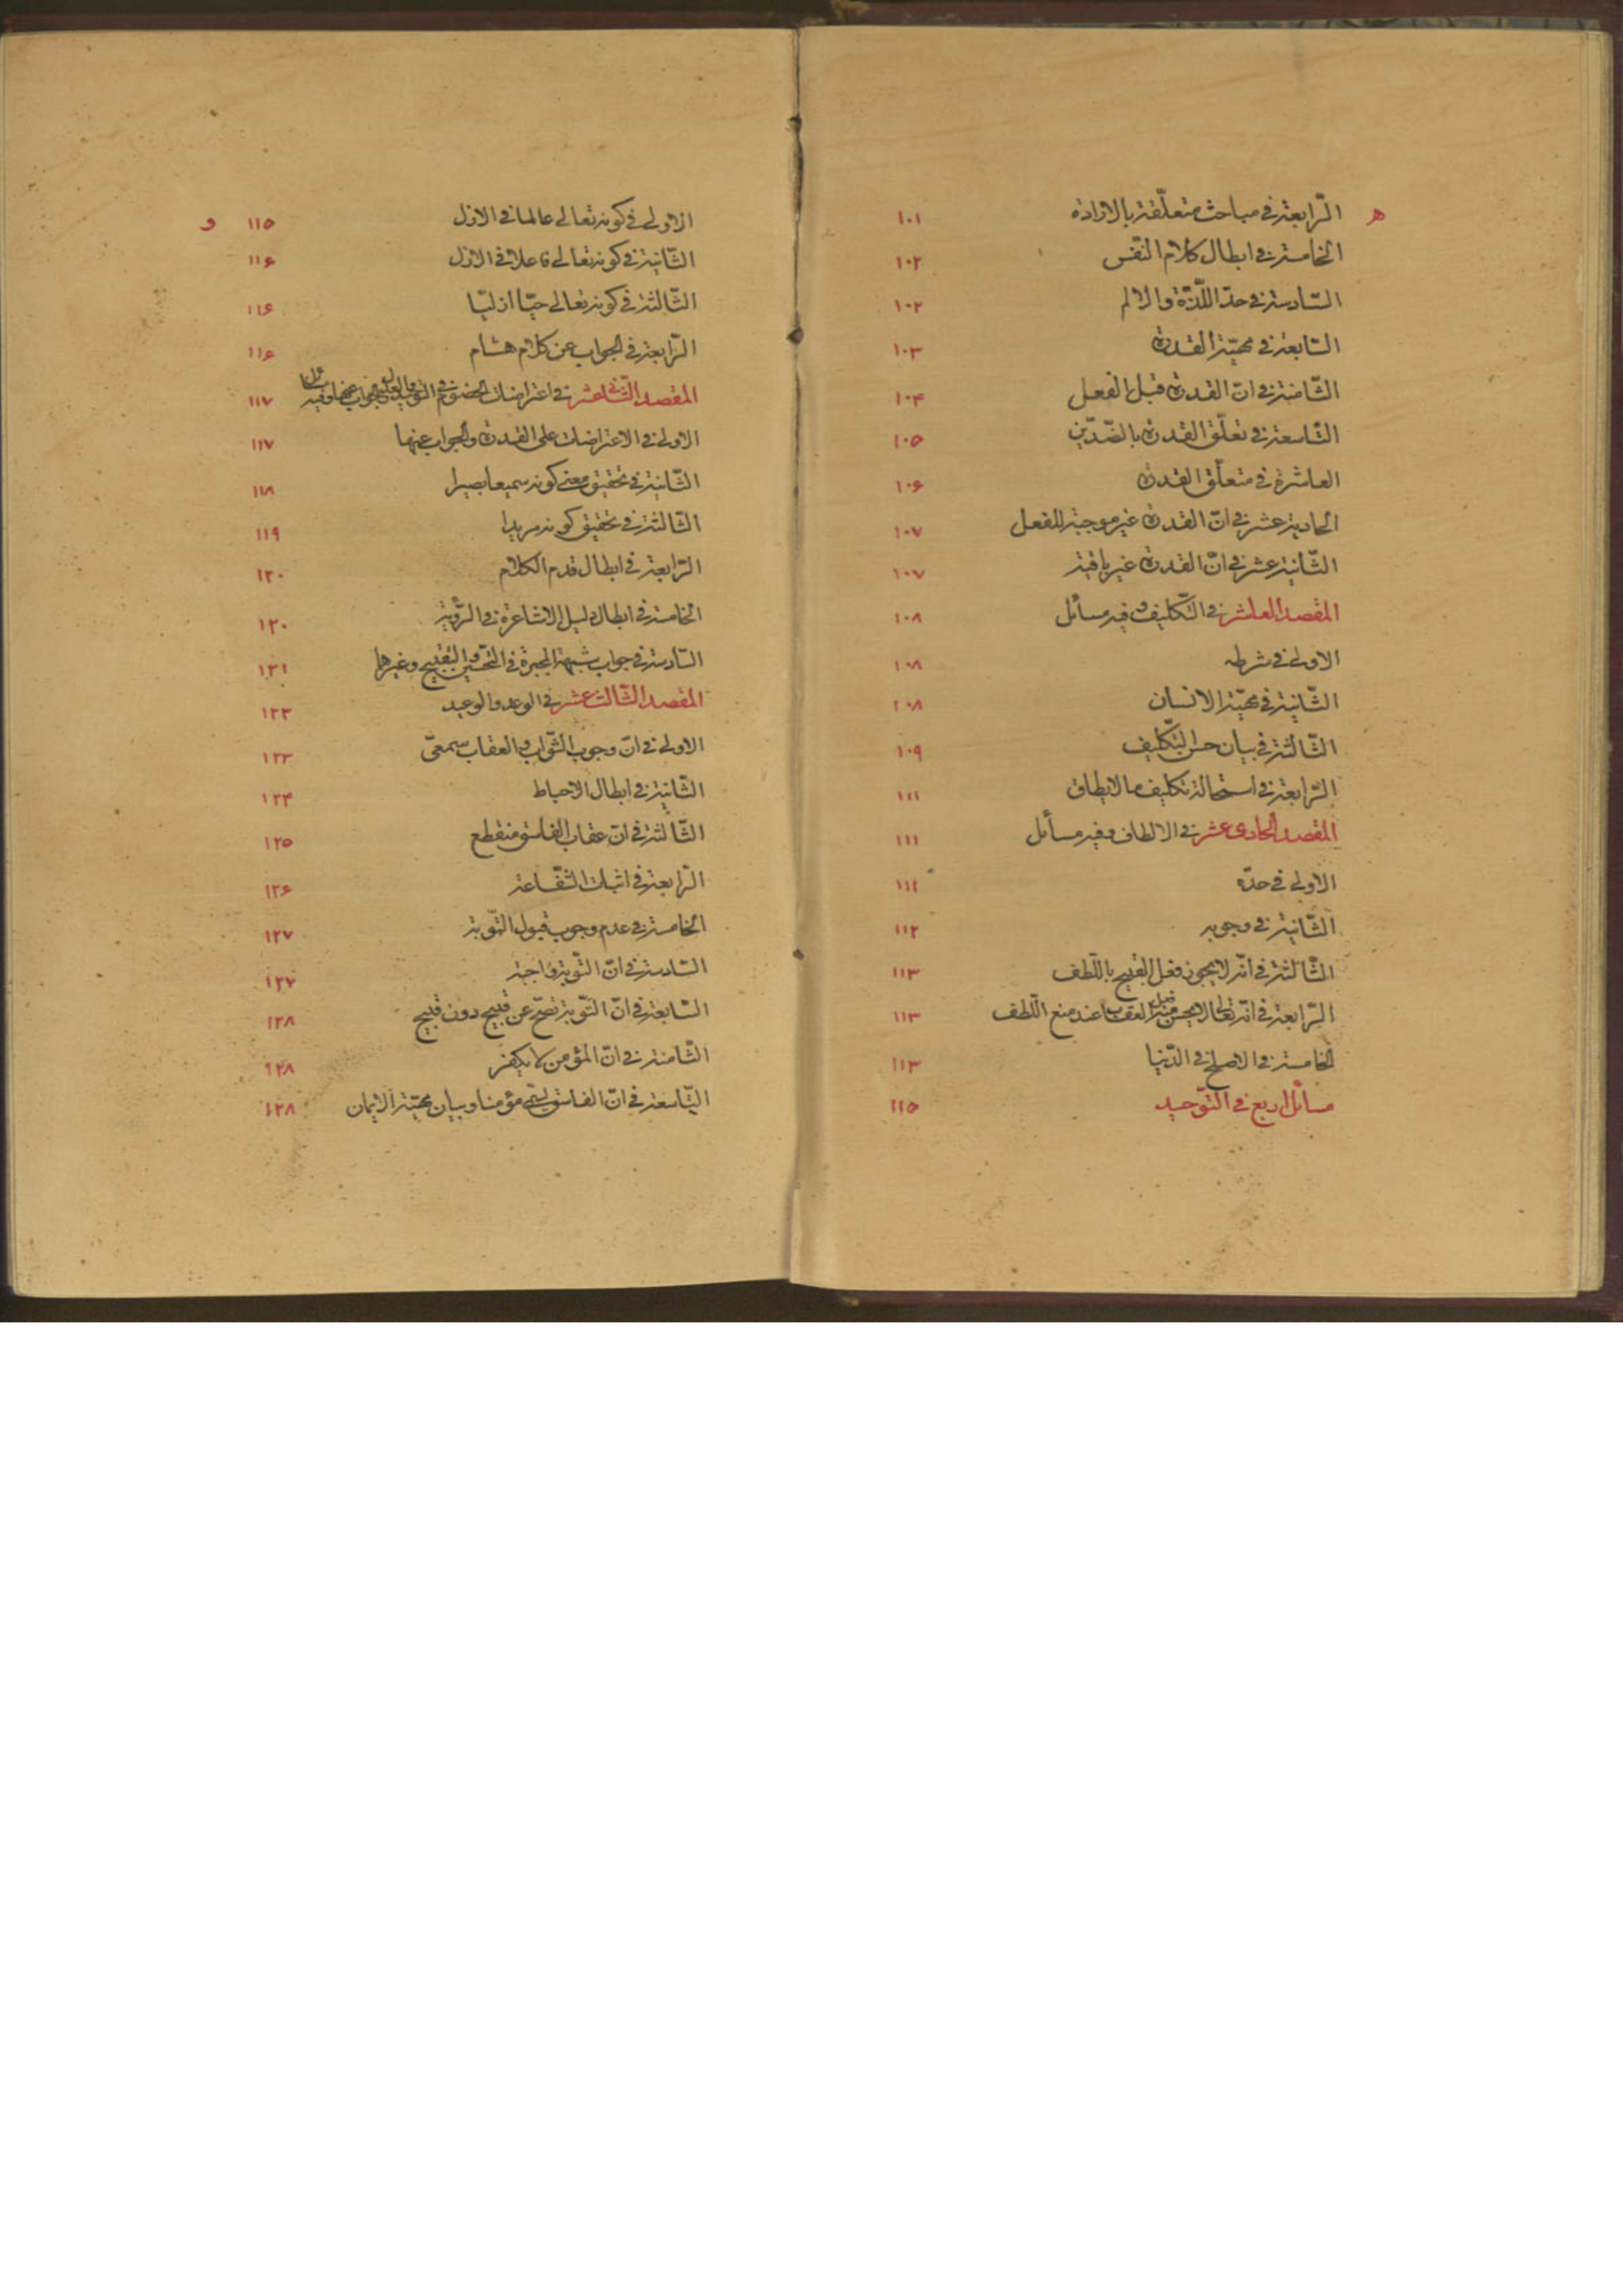 ه الرّابعة في مباحث متعلّقة بالارادة ١٠١
الخامسة في ابطال كلام النّفس ١٠٢
السّادسة في حدّ اللّذّة والالم ١٠٢
السّابعة في مهيّة القدرة ١٠٣
الثّامنة في انّ القدرة قبل الفعل ١٠۴
التّاسعة في تعلّق القدرة بالضّدّين ١٠٥
العاشرة في متعلّق القدرة ١٠۶
الحادية عشر في انّ القدرة غير موجبة للفعل ١٠٧
الثّانية عشر في انّ القدرة غير باقية ١٠٧
المقصد العاشر في التّكليف وفيه مسائل ١٠٨
الاولى في شرطه ١٠٨
الثّانية في مهيّة الانسان ١٠٨
الثّالثة في بيان حسن التّكليف ١٠٩
الرّابعة في استحالة تكليف مالايطاق ١١١
المقصد الحادى عشر في الالطاف وفيه مسائل ١١١
الاولى في حدّه ١١٢
الثّانية في وجوبه ١١٢
الثّالثة في انّه لايجوز فعل القبيح باللّطف ١١٣
الرّابعة في انّه تعالى لايحسن منه العقاب عند منع اللّطف ١١٣
الخامسة في الاصلح في الدّنيا ١١٣
مسائل اربع في التّوحيد ١١٥
الاولى في كونه تعالى عالما في الازل ١١٥ و
الثّانية في كونه تعالى فاعلا في الازل ١١۶
الثّالثة في كونه تعالى حيّا ازليّا ١١۶
الرّابعة في الجواب عن كلام هشام ١١۶
المقصد الثّانى عشر في اعتراضات الخصوم في التّوحيد والعدل والجواب عنها وفيه مسائل ١١٧
الاولى في الاعتراضات على القدرة والجواب عنها ١١٧
الثّانية في تحقيق معنى كونه سميعا بصيرا ١١٨
الثّالثة في تحقيق كونه مريدا ١١٩
الرّابعة في ابطال قدم الكلام ١٢٠
الخامسة في ابطال دليل الاشاعرة في الرّؤية ١٢٠
السّادسة في جواب شبهة المجبرة في التّحسين والتّقبيح وغيرها ١٢١
المقصد الثّالث عشر في الوعد والوعيد ١٢٣
الاولى في انّ وجوب الثّواب والعقاب سمعىّ ١٢٣
الثّانية في ابطال الاحباط ١٢۴
الثّالثة في انّ عقاب الفاسق منقطع ١٢٥
الرّابعة في اثبات الشّفاعة ١٢۶
الخامسة في عدم وجوب قبول التّوبة ١٢٧
السّادسة في انّ التّوبة واجبة ١٢٧
السّابعة في انّ التّوبة تصحّ عن قبيح دون قبيح ١٢٨
الثّامنة في انّ المؤمن لا يكفر ١٢٨
التّاسعة في انّ الفاسق يسمّى مؤمنا وبيان مهيّة الايمان ١٢٨